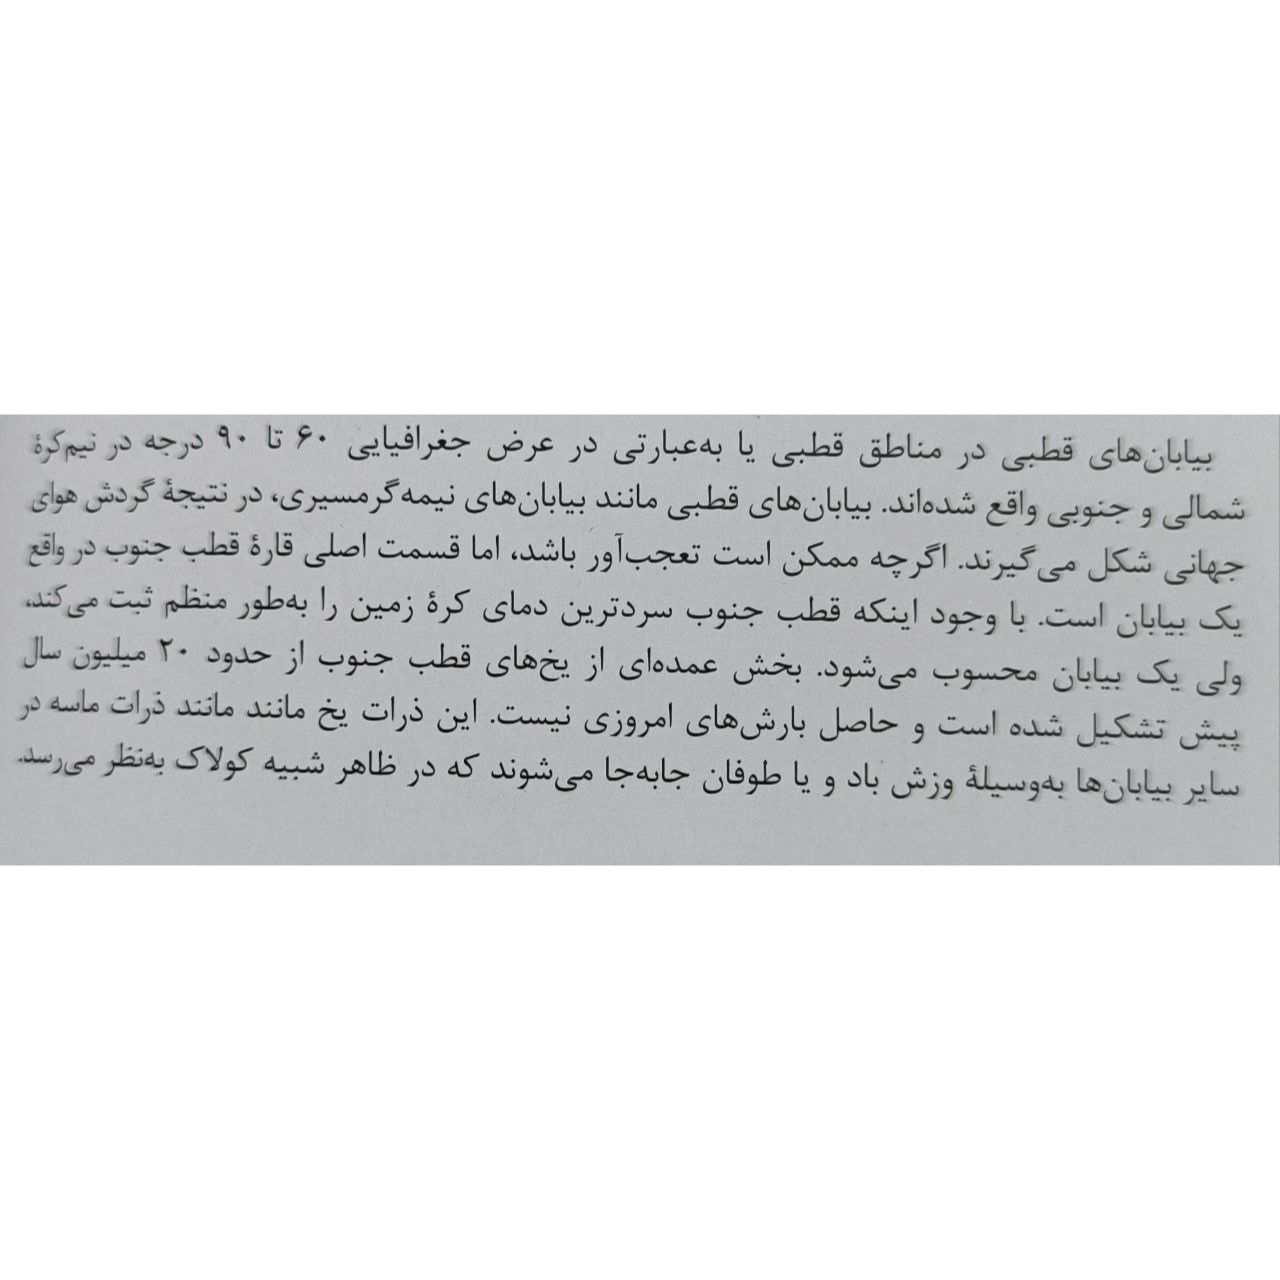 بیابان‌های قطبی در مناطق قطبی یا به‌عبارتی در عرض جغرافیایی ۶۰ تا ۹۰ درجه در نیم‌کرهٔ
شمالی و جنوبی واقع شده‌اند. بیابان‌های قطبی مانند بیابان‌های نیمه‌گرمسیری، در نتیجهٔ گردش هوای
جهانی شکل می‌گیرند. اگرچه ممکن است تعجب‌آور باشد، اما قسمت اصلی قارهٔ قطب جنوب در واقع
یک بیابان است. با وجود اینکه قطب جنوب سردترین دمای کرهٔ زمین را به‌طور منظم ثبت می‌کند،
ولی یک بیابان محسوب می‌شود. بخش عمده‌ای از یخ‌های قطب جنوب از حدود ۲۰ میلیون سال
پیش تشکیل شده است و حاصل بارش‌های امروزی نیست. این ذرات یخ مانند مانند ذرات ماسه در
سایر بیابان‌ها به‌وسیلهٔ وزش باد و یا طوفان جابه‌جا می‌شوند که در ظاهر شبیه کولاک به‌نظر می‌رسد.